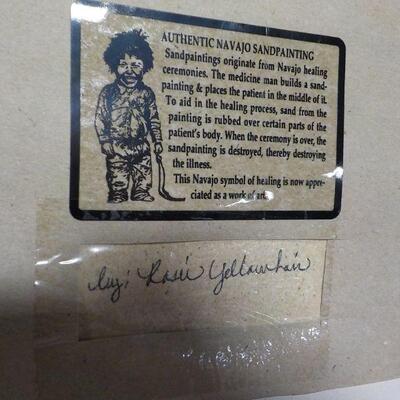 AUTHENTIC NAVAJO SANDPAINTING
Sandpaintings originate from Navajo healing
ceremonies. The medicine man builds a sand-
painting & places the patient in the middle of it.
To aid in the healing process, sand from the
painting is rubbed over certain parts of the
patient's body. When the ceremony is over, the
sandpainting is destroyed, thereby destroying
the illness.
This Navajo symbol of healing is now appre-
ciated as a work of art.
Rosie Yellowhair